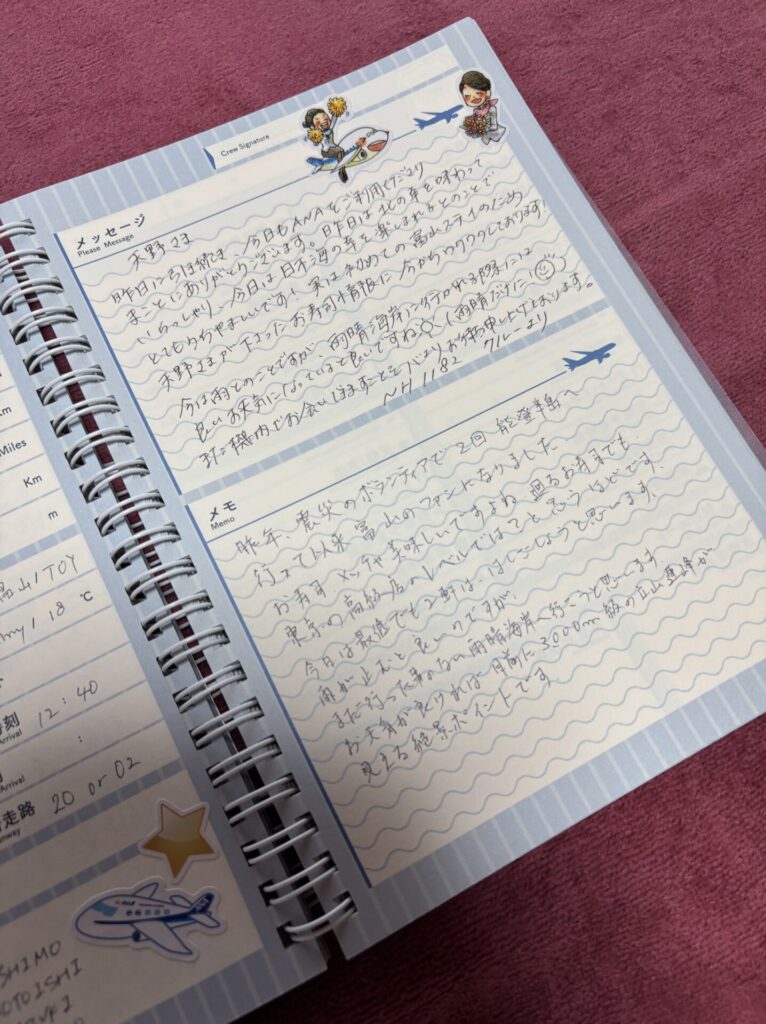 Miles
Km
m
富山 / TOY
18 ℃
時刻
Arrival
12:40
:
Arrival
走路
20 or 02
ANA
SHIMO
MOTOISHI
Crew Signature
メッセージ
Please Message
天野さま
昨日に引き続き、今日もANAをご利用くださり
まことにありがとうございます。昨日は北の幸を味わって
いらっしゃり、今日は日本海の幸を楽しまれるとのことで
とてもうらやましいです!実は初めての富山ステイのため
天野さまが下さったお寿司情報に今からワクワクしております!
今は雨とのことですが、雨晴海岸に行かれる際には
良いお天気になっていると良いですね(雨晴だけに)
また機内でお会いできますことを心よりお待ち申し上げております。
NH1182 クルーより
メモ
Memo
昨年、震災のボランティアで2回 能登半島へ
行って以来富山のファンになりました
お寿司 メッチャ美味しいですよね 廻るお寿司でも、
東京の高級店のレベルでは?と思うほどです。
今日は最低でも2軒は、はしごしようと思います、
雨が止むと良いのですが、
まだ行った事のない雨晴海岸へ行こうと思います。
お天気が良ければ目前に3000m級の立山連峰が
見える絶景ポイントです